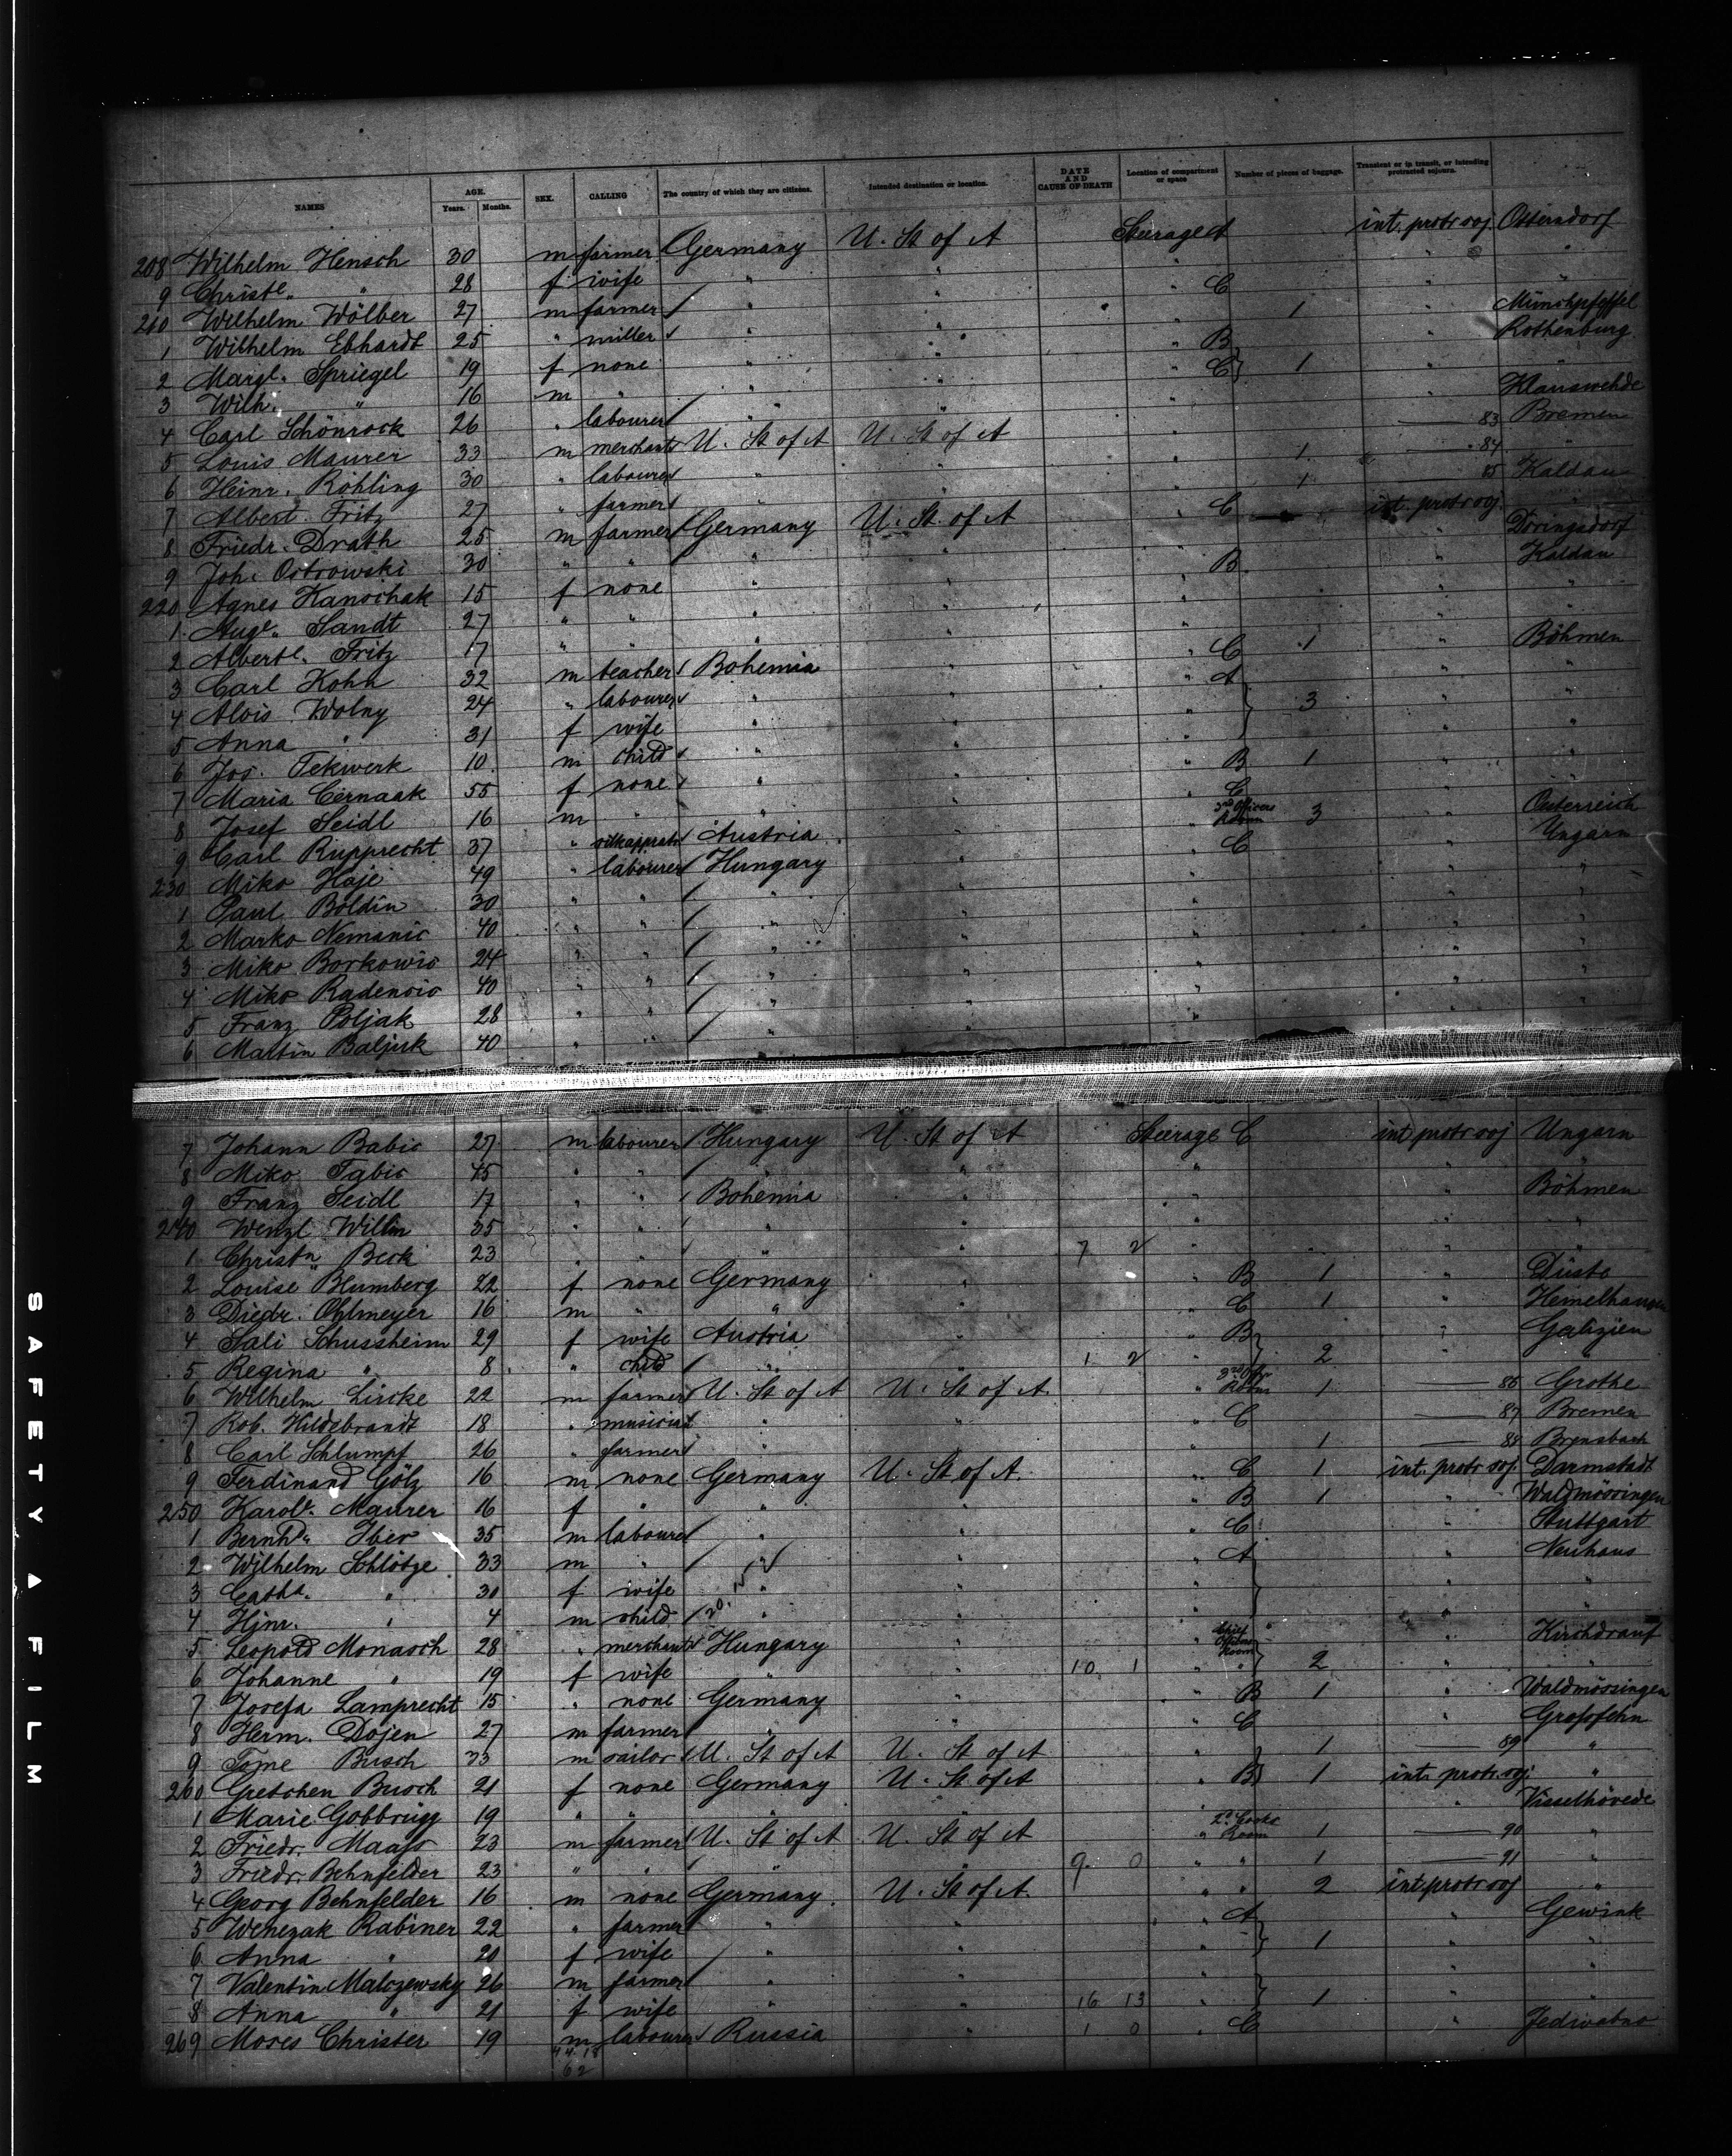 NAMES AGE. Years. Months. SEX. CALLING The country of which they are citizens. Intended destination or location. DATE AND CAUSE OF DEATH Location of compartment or space Number of pieces of baggage. Transient or in transit, or intending protracted sojourn.
208 Wilhelm Hensch 30 m farmer Germany U. St of A Steerage A int. protr soj. Otterndorf
9 Christe. " 28 f wife " " " " "
210 Wilhelm Wölber 27 m farmer " " " C 1 "
1 Wilhelm Ebhardt 25 " miller " " " B " Rothenburg
2 Margt. Spriegel 19 f none " " " C 1 "
3 Wilh. " 16 m " " " " "
4 Carl Schönrock 26 " labourer " " "
5 Louis Maurer 33 m merchant U. St of A U. St of A " 1 83 Bremen
6 Heinr. Röhling 30 " labourer " " " 1 84 "
7 Albert Fritz 27 " farmer " " " C 85 Kaldau
8 Friedr. Drath 25 m farmer Germany U. St. of A " int. protr soj. "
9 Joh. Ostrowski 30 " " " " " B " Döringsdorf
220 Agnes Kanschak 15 f none " " " " Kaldau
1 Auge. Sandt 27 " " " " " " "
2 Alberte. Fritz 17 " " " " " " "
3 Carl Kohn 32 m teacher Bohemia " " C 1 " Böhmen
4 Alois Wolny 24 " labourer " " " A 3 " "
5 Anna " 31 f wife " " " " "
6 Jos. Tekwerk 10 m child " " " B 1 " "
7 Maria Cernaak 55 f none " " " C " "
8 Josef Seidl 16 m " " " "
9 Carl Rupprecht 37 " Austria " 3rd Officers Room 3 " Österreich
230 Miko Haje 49 " labourer Hungary " " C " Ungarn
1 Paul Boldin 30 " " " " " " "
2 Marko Nemanic 40 " " " " " " "
3 Miko Borkowic 24 " " " " " " "
4 Miko Radencic 40 " " " " " " "
5 Franz Boljak 28 " " " " " " "
6 Martin Baljuk 40 " " " " " " "
7 Johann Babic 27 m labourer Hungary U. St of A Steerage C int protr soj Ungarn
8 Miko Tabic 45 " " " " " " "
9 Franz Seidl 17 " " Bohemia " " " Böhmen
240 Wenzl Willm 35 " " " " " " "
1 Christn. Beck 23 " " " " 7 2 " " "
2 Louise Blumberg 22 f none Germany " " B 1 " Düste
3 Diedr. Ohlmeyer 16 m " " " " C 1 " Hemelhausen
4 Sali Schussheim 29 f wife Austria " " B 2 " Galizien
5 Regina " 8 " child " " 1 2 " " "
6 Wilhelm Lircke 22 m farmer U. St of A U. St of A. " 3rd Offr Room 1 86 Grothe
7 Rob. Hildebrandt 18 " musician " " " C 87 Bremen
8 Carl Schlumpf 26 " farmer " " " 1 88 Brensbach
9 Ferdinand Götz 16 m none Germany U. St of A. " C 1 int. protr soj. Darmstadt
250 Karole. Maurer 16 f " " " " B 1 " Waldmössingen
1 Bernhd. Iber 35 m labourer " " " C " Stuttgart
2 Wilhelm Schlötze 33 m " " " " A " Neuhaus
3 Catha. " 30 f wife " " " " "
4 Hinr. " 4 m child " " " " "
5 Leopold Monasch 28 " merchant Hungary " " Chief Officers Room 2 " Kirchdrauf
6 Johanne " 19 f wife " " 10 1 " " " "
7 Josefa Lamprecht 15 " none Germany " " B 1 " Waldmössingen
8 Herm. Dojen 27 m farmer " " " C " Grossfehn
9 Töme Busch 33 m sailor U. St of A U. St of A " 1 89 "
260 Gretchen Busch 21 f none Germany U. St of A " B 1 int. protr. soj. "
1 Marie Gobbrügg 19 " " " " " " Visselhövede
2 Friedr. Maass 23 m farmer U. St of A U. St of A " 2d Cooks Room 1 90 "
3 Friedr. Behnfelder 23 " " " " 9 0 " " 1 91 "
4 Georg Behnfelder 16 m none Germany U. St of A. " " 2 int. protr soj "
5 Wenezak Rabiner 22 " farmer " " " A 1 " Gewink
6 Anna " 20 f wife " " " " "
7 Valentin Malczewsky 26 m farmer " " " 1 " "
8 Anna " 21 f wife " " 16 13 " " "
269 Moses Christer 19 m labourer Russia " 1 0 " C " Jedwabno
44 18
62
SAFETY A FILM